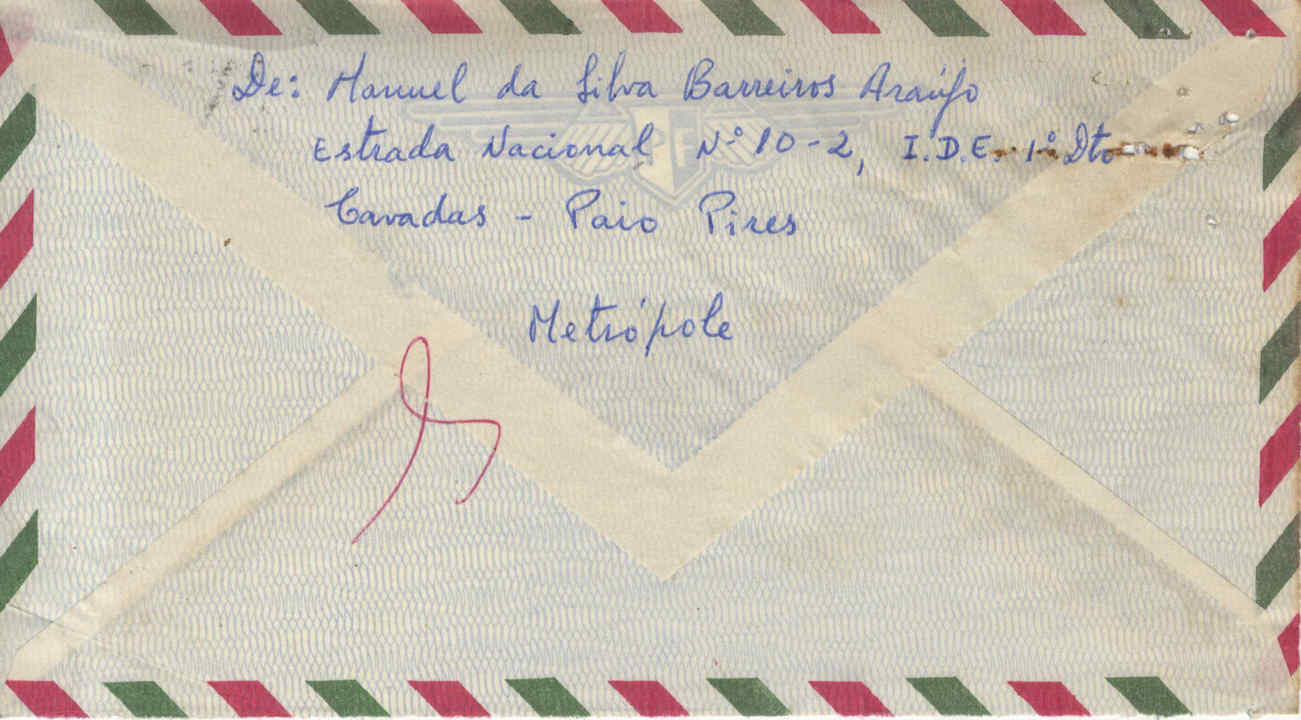 De: Manuel da Silva Barreiros Araújo
Estrada Nacional Nº 10-2, I.D.E. 1º Dto
Cavadas - Paio Pires
Metrópole